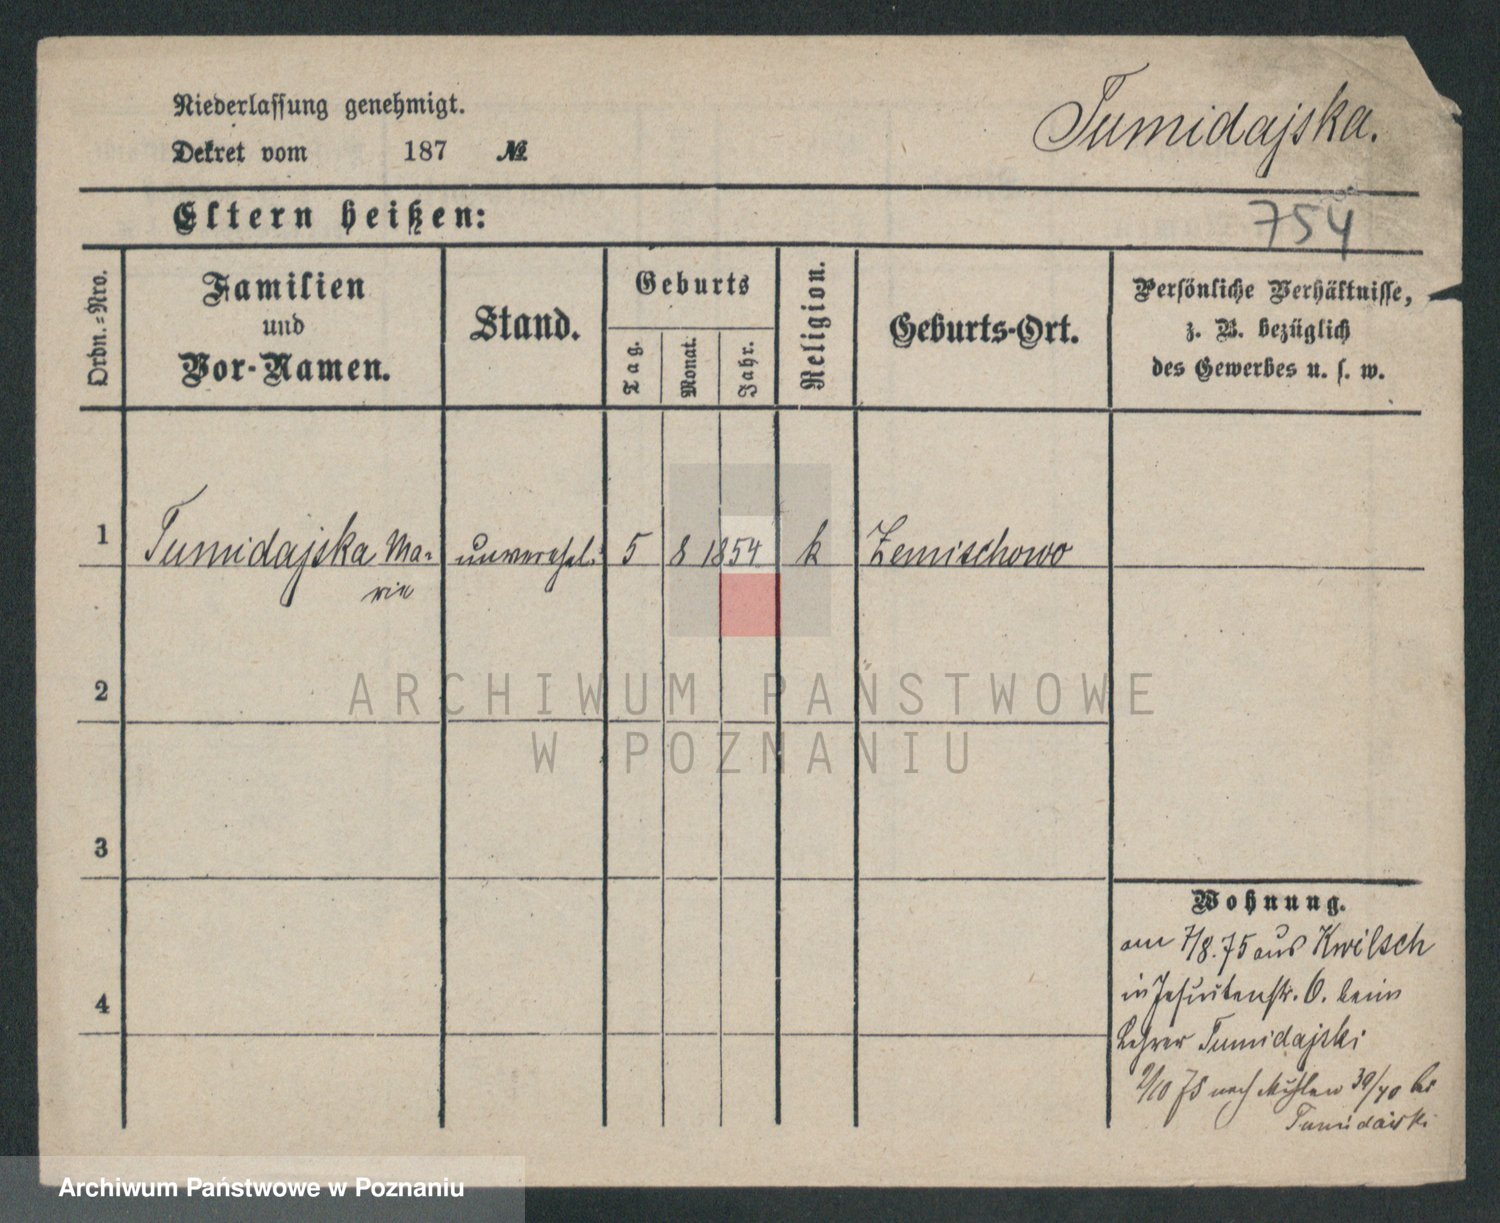 Niederlassung genehmigt.
Dekret vom 187 №
Tumidajska.
Eltern heißen:
754
Ordn.-Nro.
Familien
und
Vor-Namen.
Stand.
Geburts
Tag.
Monat.
Jahr.
Religion.
Geburts-Ort.
Persönliche Verhältnisse,
z. B. bezüglich
des Gewerbes u. s. w.
1 Tumidajska Ma- unverehel. 5 8 1854 k Zemischowo
rie
2
ARCHIWUM PAŃSTWOWE
W POZNANIU
3
Wohnung.
am 7/8.75 aus Kwilsch
in Jesuitenstr. 6. beim
4
Lehrer Tumidajski
/10 75 nach Mühlen 39/40 bei
Tumidaiski
Archiwum Państwowe w Poznaniu